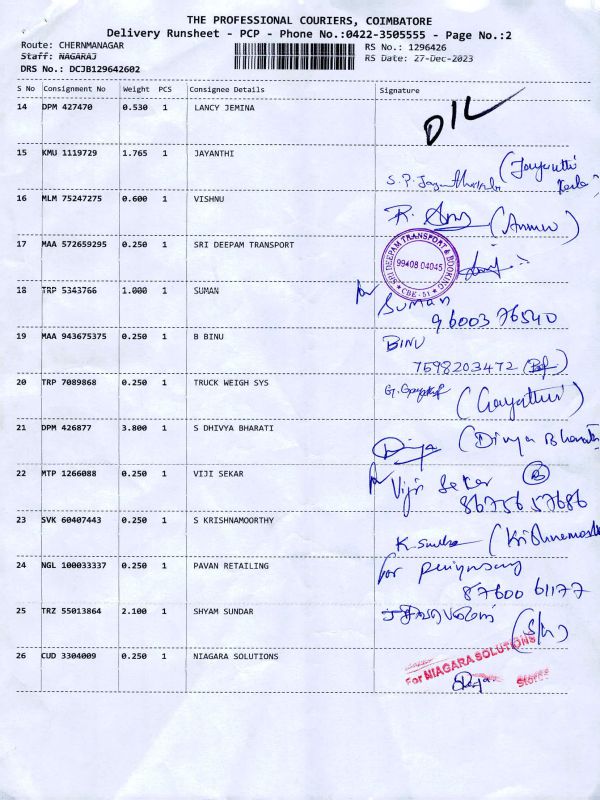 THE PROFESSIONAL COURIERS, COIMBATORE
Delivery Runsheet - PCP - Phone No.:0422-3505555 - Page No.:2
Route: CHERNMANAGAR RS No.: 1296426
Staff: NAGARAJ RS Date: 27-Dec-2023
DRS No.: DCJB129642602
S No Consignment No Weight PCS Consignee Details Signature
14 DPM 427470 0.530 1 LANCY JEMINA
15 KMU 1119729 1.765 1 JAYANTHI
16 MLM 75247275 0.600 1 VISHNU
17 MAA 572659295 0.250 1 SRI DEEPAM TRANSPORT
SRI DEEPAM TRANSPORT & BOOKING
99408 04045
CBE - 51
18 TRP 5343766 1.000 1 SUMAN
for SUMAN
96003 76540
19 MAA 943675375 0.250 1 B BINU
BINU
7598203472
20 TRP 7089868 0.250 1 TRUCK WEIGH SYS
(Gayathri)
21 DPM 426877 3.800 1 S DHIVYA BHARATI
Divya (Divya Bharathi)
22 MTP 1266088 0.250 1 VIJI SEKAR
for Viji Seker
86756 57686
23 SVK 60407443 0.250 1 S KRISHNAMOORTHY
24 NGL 100033337 0.250 1 PAVAN RETAILING
for
87600 61177
25 TRZ 55013864 2.100 1 SHYAM SUNDAR
26 CUD 3304009 0.250 1 NIAGARA SOLUTIONS
For NIAGARA SOLUTIONS
Stores